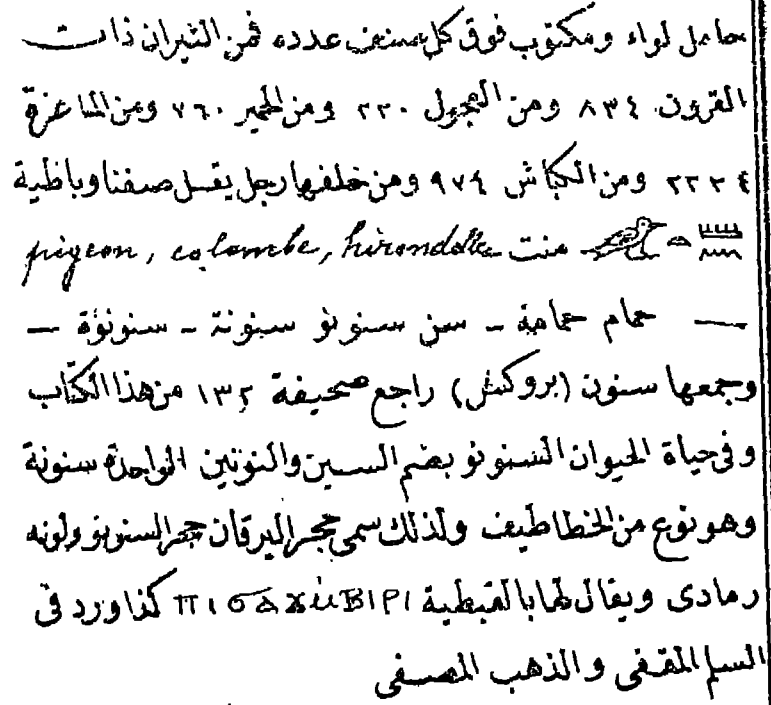 حامل لواء ومكتوب فوق كل صنف عدده فمن الثيران ذات
القرون ٨٣٤ ومن العجول ٢٢٠ ومن الحمير ٧٦٠ ومن الماعزة
٢٢٣٤ ومن الكباش ٩٧٤ ومن خلفها رجل يقــل صفنا وباظية
منت pigeon, colombe, hirondelle
— حمام حمامة - سن سنونو سنونة - سنونوة —
وجمعها سنون (بروكش) راجع صحيفة ١٣٢ من هذا الكتاب
وفى حياة الحيوان السنونو بضم السين والنونين الواحدة سنونة
وهو نوع من الخطاطيف ولذلك سمى حجر اليرقان حجر السنونو ولونه
رمادى ويقال لها بالقبطية كذا ورد فى
السلم المقفى والذهب المصفى